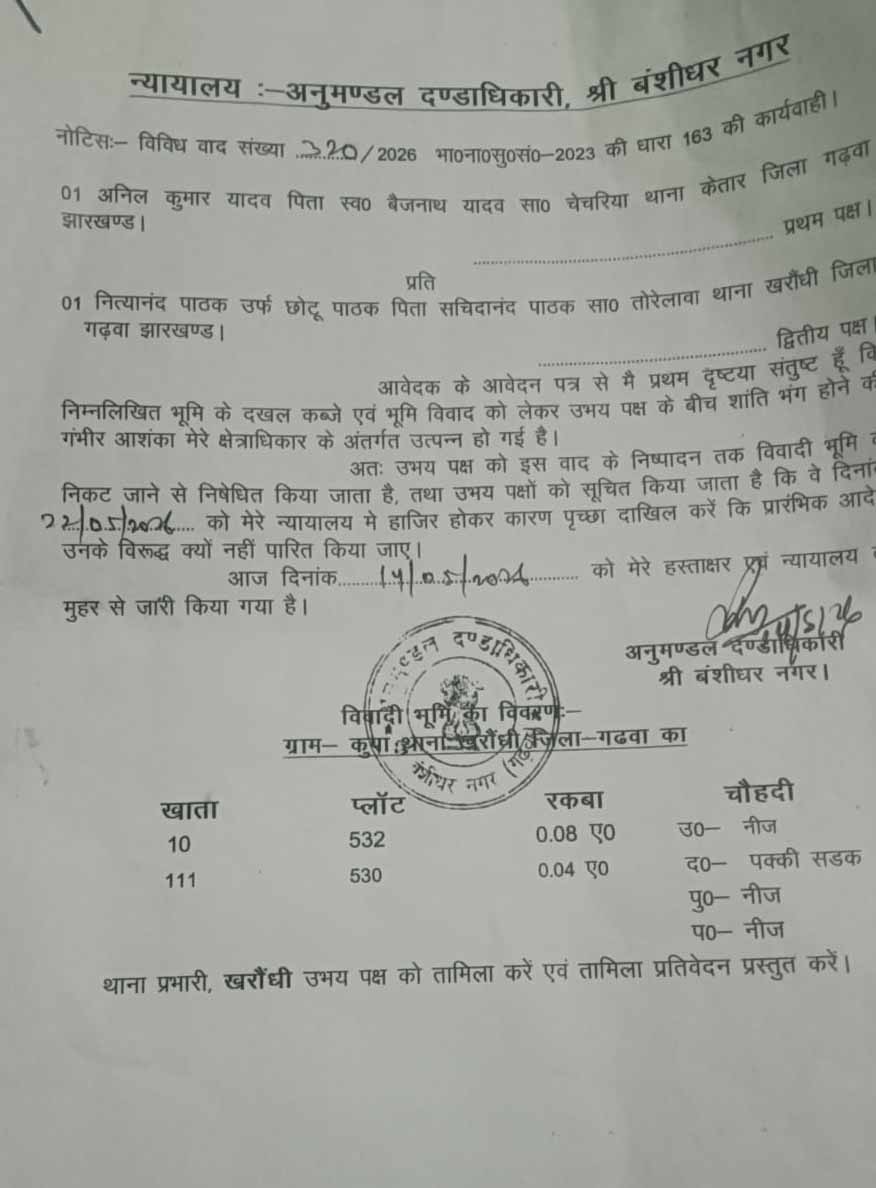 न्यायालय :–अनुमण्डल दण्डाधिकारी, श्री बंशीधर नगर
नोटिसः– विविध वाद संख्या 320/2026 भा0ना0सु0सं0–2023 की धारा 163 की कार्यवाही।
01 अनिल कुमार यादव पिता स्व0 बैजनाथ यादव सा0 चेचरिया थाना केतार जिला गढ़वा
झारखण्ड।
............................ प्रथम पक्ष।
प्रति
01 नित्यानंद पाठक उर्फ छोटू पाठक पिता सचिदानंद पाठक सा0 तोरेलावा थाना खरौंधी जिला
गढ़वा झारखण्ड।
............................ द्वितीय पक्ष।
आवेदक के आवेदन पत्र से मै प्रथम दृष्टया संतुष्ट हूँ
निम्नलिखित भूमि के दखल कब्जे एवं भूमि विवाद को लेकर उभय पक्ष के बीच शांति भंग होने
गंभीर आशंका मेरे क्षेत्राधिकार के अंतर्गत उत्पन्न हो गई है।
अतः उभय पक्ष को इस वाद के निष्पादन तक विवादी भूमि
निकट जाने से निषेधित किया जाता है, तथा उभय पक्षों को सूचित किया जाता है कि वे
22/05/2026 को मेरे न्यायालय मे हाजिर होकर कारण पृच्छा दाखिल करें कि प्रारंभिक
उनके विरूद्ध क्यों नहीं पारित किया जाए।
आज दिनांक 14/05/2026 को मेरे हस्ताक्षर एवं न्यायालय
मुहर से जारी किया गया है।
14/5/26
अनुमण्डल दण्डाधिकारी
श्री बंशीधर नगर।
अनुमण्डल दण्डाधिकारी
बंशीधर नगर
विवादी भूमि का विवरणः–
ग्राम– थाना खरौंधी जिला–गढवा का
खाता प्लॉट रकबा चौहदी
10 532 0.08 ए0 उ0– नीज
111 530 0.04 ए0 द0– पक्की सडक
पु0– नीज
प0– नीज
थाना प्रभारी, खरौंधी उभय पक्ष को तामिला करें एवं तामिला प्रतिवेदन प्रस्तुत करें।